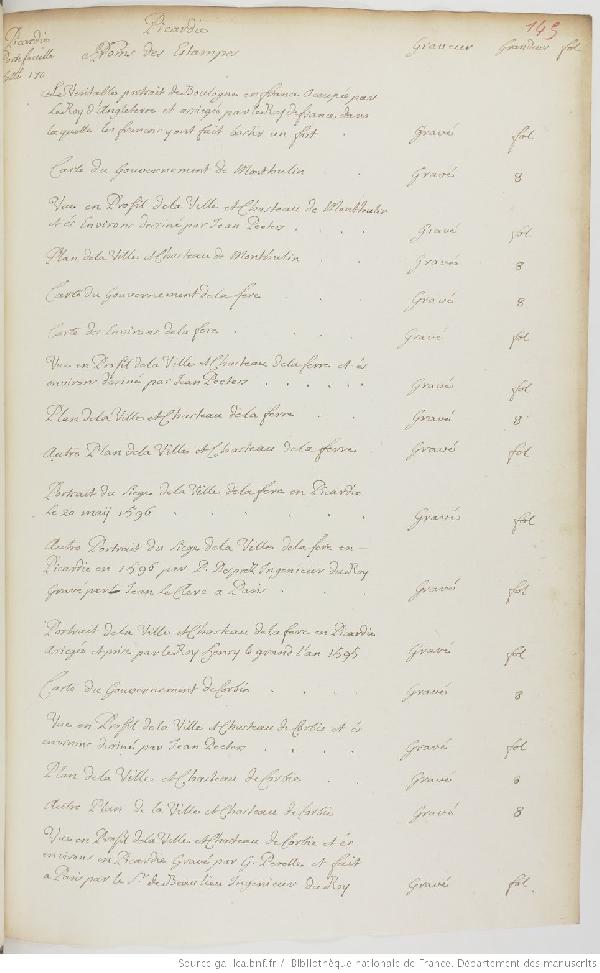 Picardie
149
Picardie
Portefeuille
Noms des Estampes Graveur Grandeur fol
Le Veritable portrait de Boulogne en france occupée par
le Roy d'Angleterre et assiegé par le Roy de france, dans
laquelle les francois y ont fait bastir un fort Gravé fol
Carte du Gouvernement de Monthulin Gravé 8
Vue en Profil de la Ville et Chasteau de Monthulin
et es Environs dessiné par Jean Peeters Gravé fol
Plan de la Ville et Chasteau de Monthulin Gravé 8
Carte du Gouvernement de la fere Gravé 8
Carte des Environs de la fere Gravé fol
Vue en Profil de la Ville et Chasteau de la ferre et es
environs dessiné par Jean Peeters Gravé fol
Plan de la Ville et Chasteau de la ferre Gravé 8
Autre Plan de la Ville et Chasteau de la fferre Gravé fol
Portrait du Siege de la Ville de la fere en Picardie
le 20 maij 1596 Gravés fol
Autre Portrait du Siege de la Ville de la fere en
Picardie en 1596 par P. Ingenieur du Roy
Gravé par Jean le Clerc a Paris Gravé fol
Portrait de la Ville et Chasteau de la fere en Picardie
Assiegée et prise par le Roy Henry le grand l'an 1595 Gravé fol
Carte du Gouvernement de Corbie Gravé 8
Vue en Profil de la Ville et Chasteau de Corbie et es
environs dessiné par Jean Peeters Gravé fol
Plan de la Ville et Chasteau de Corbie Gravé 8
Autre Plan de la Ville et Chasteau de Corbie Gravé 8
Vue en Profil de la Ville et Chasteau de Corbie et es
environs en Picardie Gravé par G. Perelle et fait
a Paris par le Sr. de Beaulieu Ingenieur du Roy Gravé fol.
Source gallica.bnf.fr / Bibliothèque nationale de France. Département des manuscrits